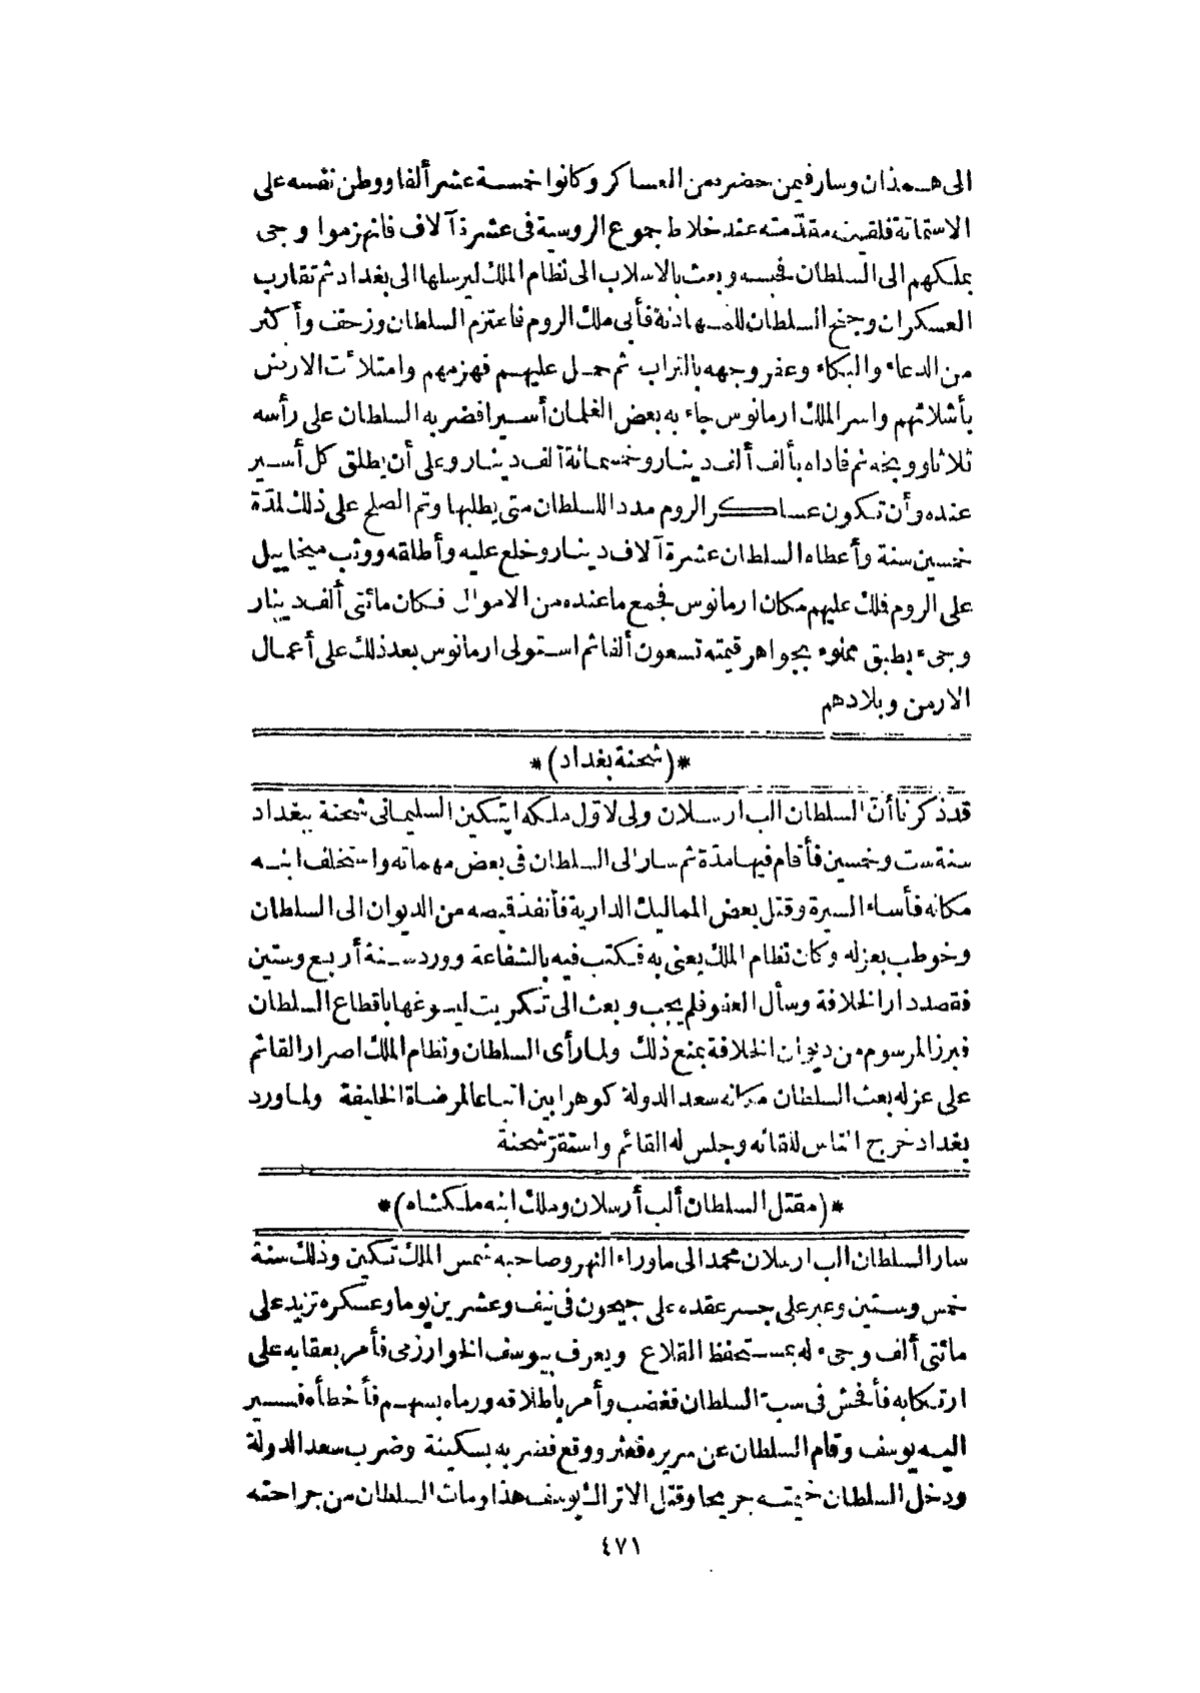 الى هـمذان وسار فيمن حضره من العساكر وكانوا خمسة عشر ألفا ووطن نفسه على
الاستماتة فلقيت مقدّمته عند خلاط جموع الروسية فى عشرة آلاف فانهزموا وجىء
بملكهم الى السلطان فحبسه وبعث بالاسلاب الى نظام الملك ليرسلها الى بغداد ثم تقارب
العسكران وجنح السلطان للمهادنة فأبى ملك الروم فاعتزم السلطان وزحف وأكثر
من الدعاء والبكاء وعفر وجهه بالتراب ثم حمل عليهم فهزمهم وامتلأت الارض
بأشلائهم واسر الملك ارمانوس جاء به بعض الغلمان أسيرا فضربه السلطان على رأسه
ثلاثا ووبخه ثم فاداه بألف ألف دينار وخمسمائة ألف دينار وعلى أن يطلق كل أسير
عنده وأن تكون عساكر الروم مددا للسلطان متى يطلبها وتم الصلح على ذلك لمدّة
خمسين سنة وأعطاه السلطان عشرة آلاف دينار وخلع عليه وأطلقه ووثب ميخاييل
على الروم فملك عليهم مكان ارمانوس فجمع ما عنده من الاموال فكان مائتى ألف دينار
وجىء بطبق مملوء بجواهر قيمته تسعون ألفا ثم استولى ارمانوس بعد ذلك على أعمال
الارمن وبلادهم
*(شحنة بغداد)*
قد ذكرنا أنّ السلطان الب ارسلان ولى لاوّل ملكه ايتكين السليمانى شحنة ببغداد
سنة ست وخمسين فأقام فيها مدّة ثم سار الى السلطان فى بعض مهماته واستخلف ابنه
مكانه فأساء السيرة وقتل بعض المماليك الدارية فأنفذ قميصه من الديوان الى السلطان
وخوطب بعزله وكان نظام الملك يعنى به فكتب فيه بالشفاعة وورد سنة أربع وستين
فقصد دار الخلافة وسأل العفو فلم يجب وبعث الى تكريت ليسوغها باقطاع السلطان
فبرز المرسوم من ديوان الخلافة بمنع ذلك ولما رأى السلطان ونظام الملك اصرار القائم
على عزله بعث السلطان مكانه سعد الدولة كوهرايين اتباعا لمرضاة الخليفة ولما ورد
بغداد خرج الناس للقائه وجلس له القائم واستقرّ شحنة
*(مقتل السلطان ألب أرسلان وملك ابنه ملكشاه)*
سار السلطان الب ارسلان محمد الى ما وراء النهر وصاحبه شمس الملك تكين وذلك سنة
خمس وستين وعبر على جسر عقده على جيحون فى نيف وعشرين يوما وعسكره تزيد على
مائتى ألف وجىء له بمستحفظ القلاع ويعرف بيوسف الخوارزمى فأمر بعقابه على
ارتكابه فأفحش فى سبّ السلطان فغضب وأمر باطلاقه ورماه بسهم فأخطأه فسير
اليه يوسف وقام السلطان عن سريره فعثر ووقع فضربه بسكينة وضرب سعد الدولة
ودخل السلطان خيمته جريحا وقتل الاتراك يوسف هذا ومات السلطان من جراحته
٤٧١